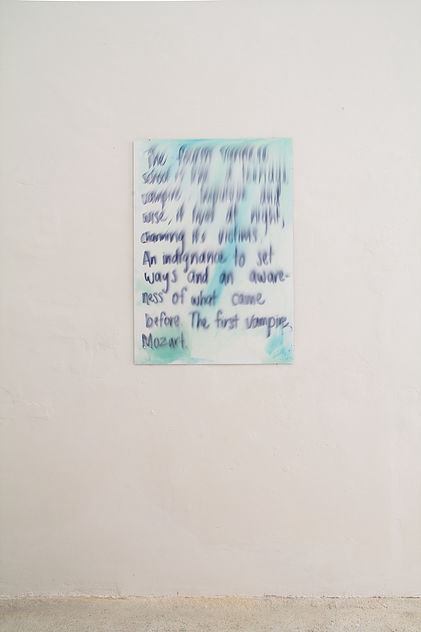 The
school
vampire and
wise, it at night,
charming its victims.
An indignance to set
ways and an aware-
ness of what came
before. The first vampire,
Mozart.